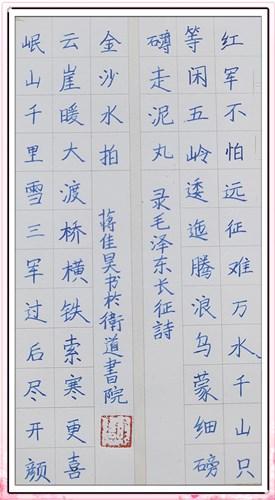 红军不怕远征难万水千山只
等闲五岭逶迤腾浪乌蒙细磅
礴走泥丸 录毛泽东长征詩
金沙水拍 蒋佳昊书於衛道書院
云崖暖大渡桥横铁索寒更喜
岷山千里雪三军过后尽开颜